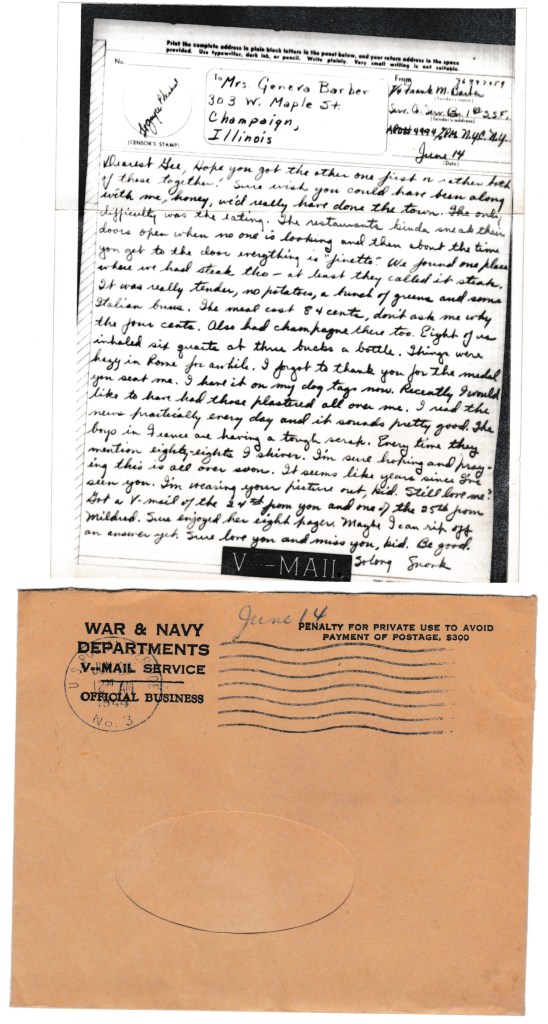 Print the complete address in plain block letters in the panel below, and your return address in the space
provided. Use typewriter, dark ink, or pencil. Write plainly. Very small writing is not suitable.
No.
(CENSOR'S STAMP)
To Mrs. Geneva Barber
303 W. Maple St.
Champaign,
Illinois
From
Frank M. Barber
(Sender's name)
Serv. Co. Serv. Bn. 1st S.S.F.
(Sender's address)
N.Y.C. N.Y.
June 14
(Date)
Dearest Gee, Hope you got the other one first or rather both
of these together. Sure wish you could have been along
with me, honey, we'd really have done the town. The only
difficulty was the eating. The restaurants kinda sneak their
doors open when no one is looking and then about the time
you get to the door everything is "finetto" We found one place
where we had steak tho - at least they called it steak.
It was really tender, no potatoes, a bunch of greens and some
Italian buns. The meal cost 84 cents, don't ask me why
the four cents. Also had champagne there too. Eight of us
inhaled six quarts at three bucks a bottle. Things were
hazy in Rome for awhile. I forgot to thank you for the medal
you sent me. I have it on my dog tags now. Recently I would
like to have had those plastered all over me. I read the
news practically every day and it sounds pretty good. The
boys in France are having a tough scrap. Every time they
mention eighty-eights I shiver. I'm sure hoping and pray-
ing this is all over soon. It seems like years since I've
seen you. I'm wearing your picture out, kid. Still love me?
Got a V-mail of the 24th from you and one of the 25th from
Mildred. Sure enjoyed her eight pager. Maybe I can rip off
an answer yet. Sure love you and miss you, kid. Be good.
Solong Snork
V--MAIL
June 14
WAR & NAVY
DEPARTMENTS
V--MAIL SERVICE
OFFICIAL BUSINESS
PENALTY FOR PRIVATE USE TO AVOID
PAYMENT OF POSTAGE, $300
1944
No. 3